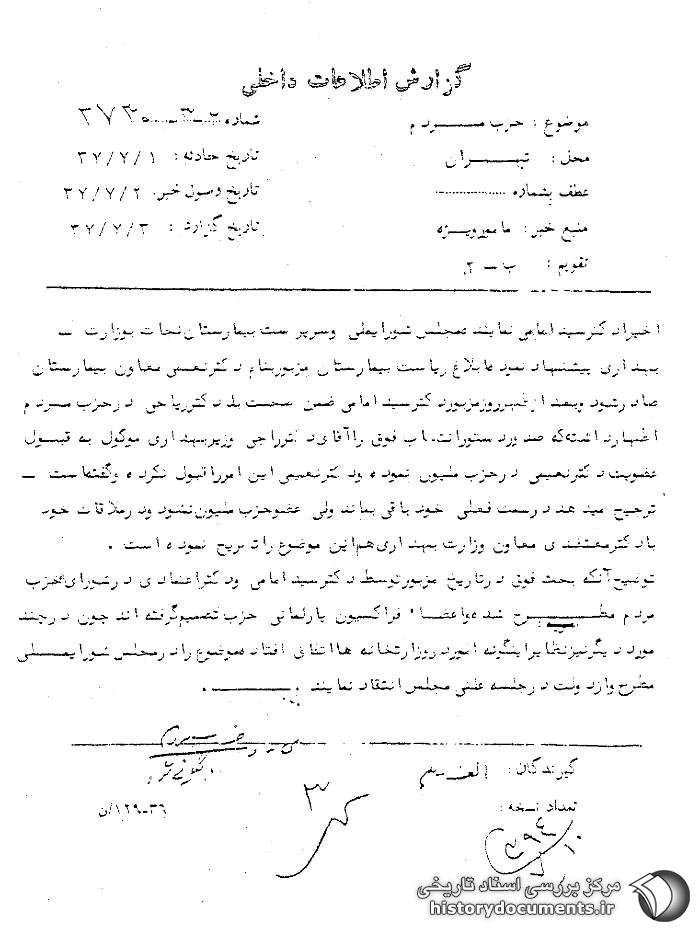 گزارش اطلاعات داخلی
موضوع : حزب مردم
شماره
محل : تهران
تاریخ حادثه : ۳۷/۷/۱
عطف بشماره ....................
تاریخ وصول خبر: ۳۷/۷/۲
منبع خبر : مامور ویژه
تاریخ گزارش : ۳۷/۷/۳
تقویم : ب ـ ۲
اخیرا دکتر سید امامی نماینده مجلس شورایملی و سرپرست بیمارستان نجات بوزارت ـ
بهداری پیشنهاد نموده ابلاغ ریاست بیمارستان مزبور بنام دکتر نعیمی معاون بیمارستان
صادر شود و بعد از ظهر روز مزبور دکتر سید امامی ضمن صحبت با دکتر ریاحی در حزب مردم
اظهار داشته که صدور دستور انتصاب فوق را آقای دکتر راجی وزیر بهداری موکول به قبول
عضویت دکتر نعیمی در حزب ملیون نموده و دکتر نعیمی این امر را قبول نکرده و گفته است ـ
ترجیح میدهد در سمت فعلی خود باقی بماند ولی عضو حزب ملیون نشود و در ملاقات خود
با دکتر معتمدی معاون وزارت بهداری هم این موضوع را تشریح نموده است .
توضیح آنکه بحث فوق در تاریخ مزبور توسط دکتر سید امامی و دکتر اعتمادی در شورای حزب
مردم مطرح شده و اعضاء فراکسیون پارلمانی حزب تصمیم گرفته اند چون در چند
مورد دیگر نیز نظایر اینگونه امور در وزارتخانه ها اتفاق افتاده موضوع را در مجلس شورایملی
مطرح و از دولت در جلسه علنی مجلس انتقاد نمایند .
حزب مردم
گیرندگان :
تعداد نسخه :
۱۲۹-۳۶/ن
۳
مرکز بررسی اسناد تاریخی
historydocuments.ir